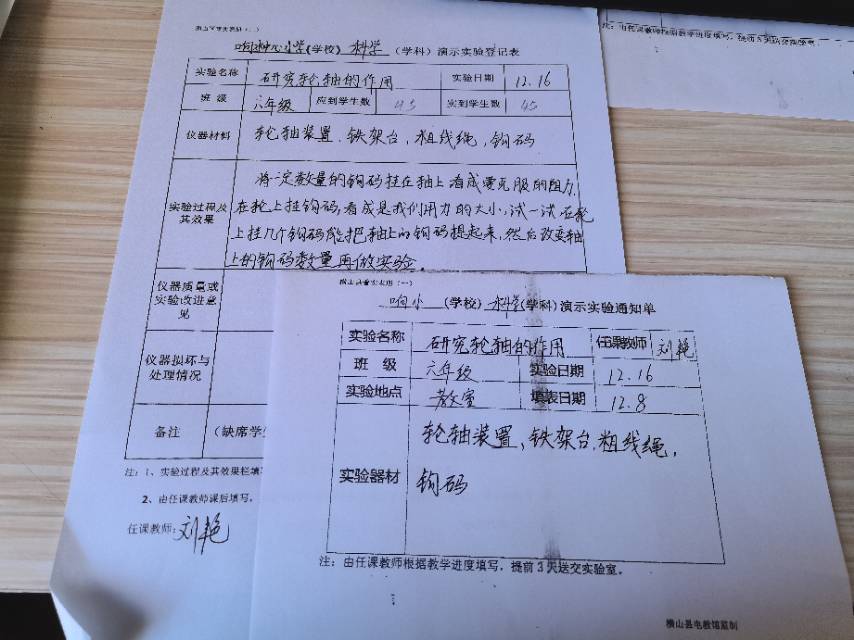 小学(学校) 科学 (学科)演示实验登记表
实验名称 研究轮轴的作用 实验日期 12.16
班 级 六年级 应到学生数 45 实到学生数 45
仪器材料 轮轴装置、铁架台,粗线绳,钩码
实验过程及其效果
将一定数量的钩码挂在轴上看成要克服的阻力,
在轮上挂钩码,看成是我们用力的大小,试一试在轮
上挂几个钩码能把轴上的钩码提起来,然后改变轴
上的钩码数量再做实验。
仪器质量或
实验改进意
见
仪器损坏与
处理情况
备注 (缺席学
注:1、实验过程及其效果栏填
2、由任课教师课后填写。
任课教师:刘艳
响小 (学校) 科学(学科)演示实验通知单
实验名称 研究轮轴的作用 任课教师 刘艳
班 级 六年级 实验日期 12.16
实验地点 教室 填表日期 12.8
实验器材
轮轴装置,铁架台,粗线绳,
钩码
注:由任课教师根据教学进度填写,提前3天送交实验室。
横山县电教馆监制
注:由任课教师根据教学进度填写,提前3天送交实验室。